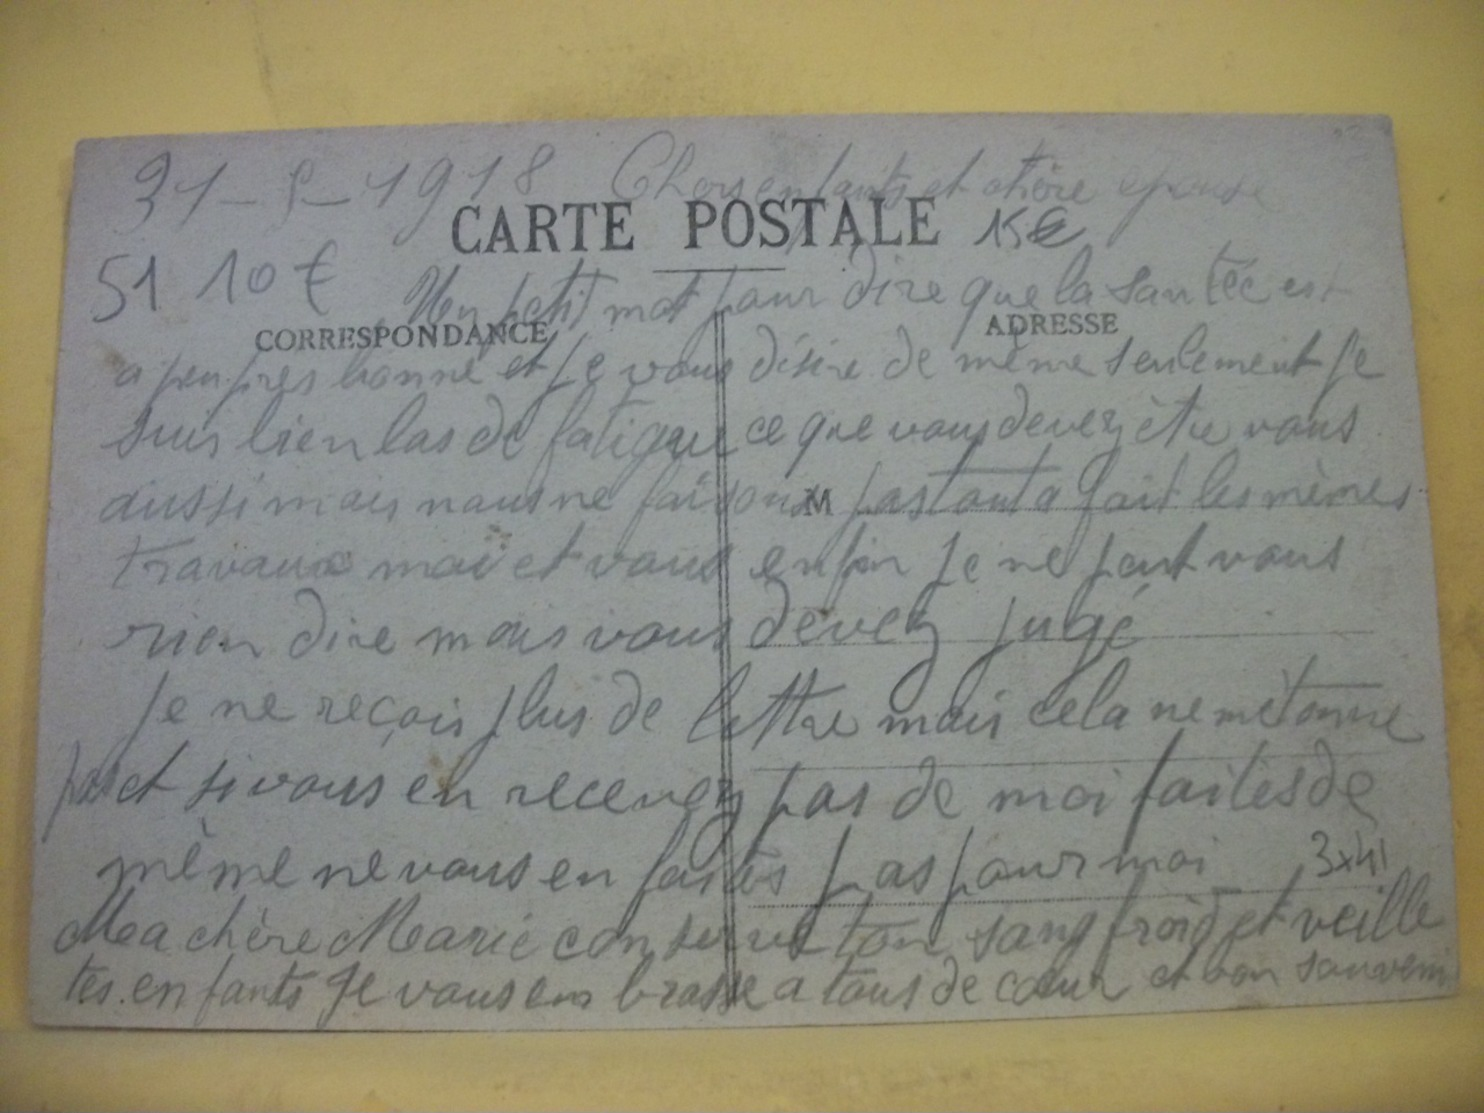 31-5-1918 Chers enfants et chère epouse
CARTE POSTALE 15€
51 10€ Un petit mot pour dire que la santéé est
CORRESPONDANCE ADRESSE
a peu pres bonne et je vous désire de même seulement je
suis bien las de fatigue ce que vous devez être vous
aussi mais nous ne faisons pas tout a fait les mêmes
M
travaux moi et vous enfin je ne peut vous
rien dire mais vous devez jugé
je ne reçois plus de lettre mais cela ne métonne
pas et si vous en recevez pas de moi faites de
même ne vous en faites pas pour moi 3x41
Ma chère Marie conserve ton sang froid et veille
tes enfants Je vous em brasse a tous de cœur et bon souvenir